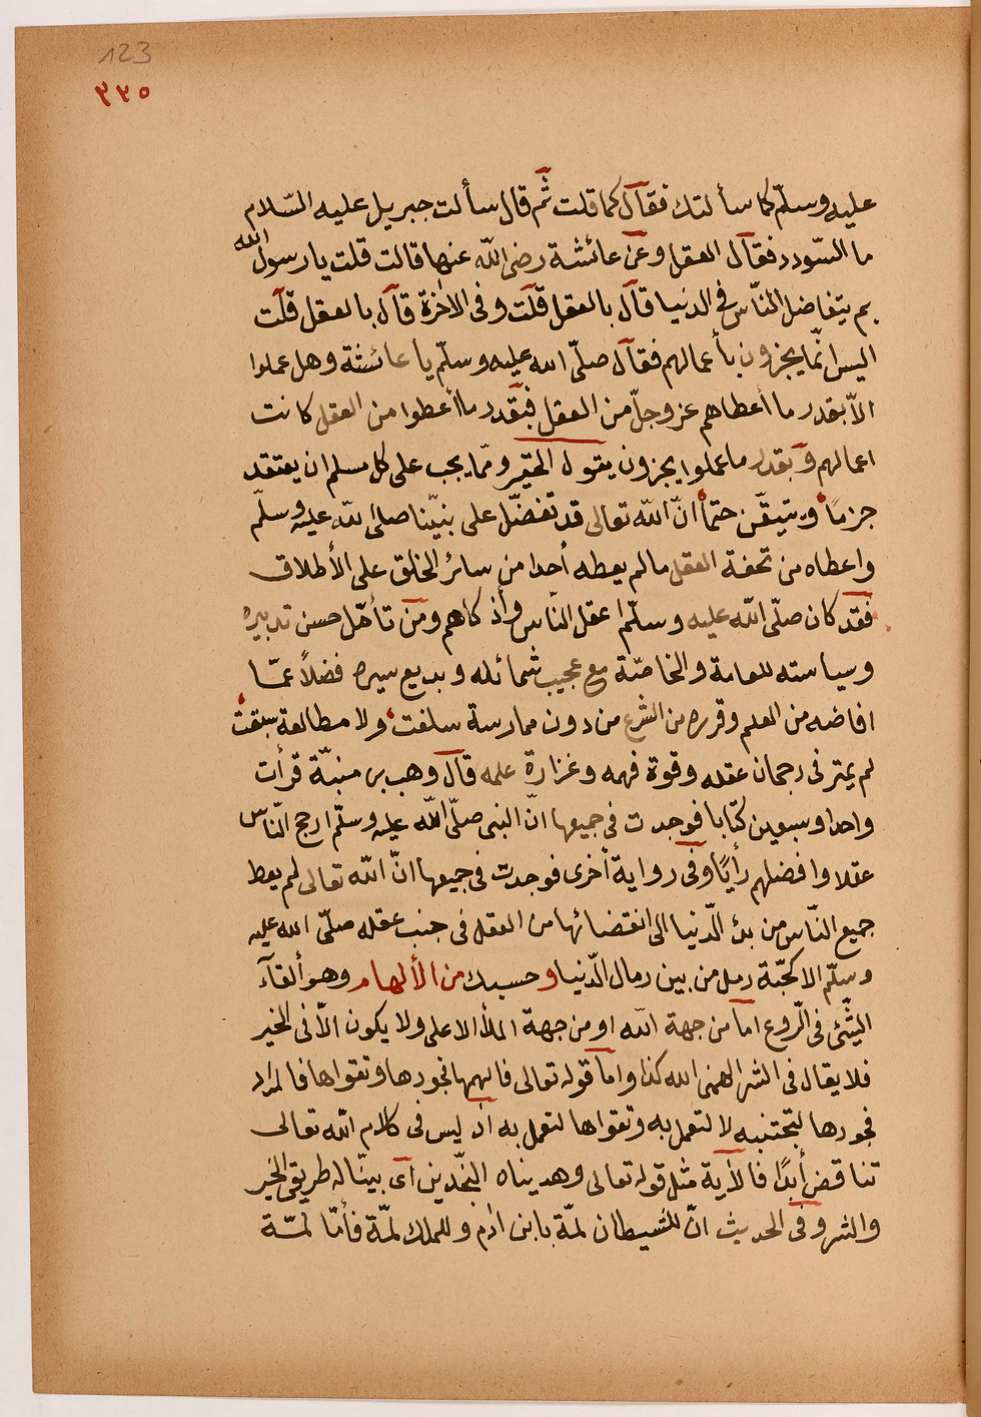 123
٢٢٥
عليه وسلّم كما سألتك فقال كما قلت ثم قال سألت جبريل عليه السّلام
ما السّودد فقال العقل وعن عائشة رضى اللّه عنها قالت قلت يا رسول اللّه
بم يتفاضل النّاس فى الدنيا قال بالعقل قلت وفى الاخرة قال بالعقل قلت
اليس انّما يجزون بأعمالهم فقال صلّى الله عليه وسلّم يا عائشة وهل عملوا
الاّ بقدر ما أعطاهم عز وجلّ من العقل فبقدر ما أعطوا من العقل كانت
اعمالهم وبقدر ما عملوا يجزون يقول الحقير وممّا يجب على كل مسلم ان يعتقد
جزمًا ويتيقّن حتمًا انّ اللّه تعالى قد تفضّل على نبيّنا صلى اللّه عليه وسلّم
واعطاه من تحفة العقل ما لم يعطه أحدا من سائر الخلق على الأطلاق
فقد كان صلّى اللّه عليه وسلّم اعقل النّاس وأذكاهم ومن تأمّل حسن تدبيره
وسياسته للعامة والخاصّة مع عجيب شمائله وبديع سيره فضلاً عمّا
افاضه من العلم وقرره من الشرع من دون ممارسة سلفت ولا مطالعة سبقت
لم يمتر فى رجحان عقله وقوة فهمه وغزارة علمه قال وهب بن منبّة قرأت
واحدا وسبعين كتابا فوجدت فى جميعها انّ النبى صلّى اللّه عليه وسلّم ارجح النّاس
عقلا وافضلهم رأيًا وفى رواية أخرى فوجدت فى جميعها انّ اللّه تعالى لم يعط
جميع النّاس من بدئ الدّنيا الى انقضائها من العقل فى جنب عقله صلّى الله عليه
وسلّم الا كحبّة رمل من بين رمال الدّنيا وحسبك من الألهام وهو ألقآء
الشّئ فى الرّوع اما من جهة اللّه او من جهة الملأ الاعلى ولا يكون الاّ فى الخير
فلا يقال فى الشر الهمنى الله كذا واما قوله تعالى فالهمها فجورها وتقواها فالمراد
فجورها لتجتنبه لا لتعمل به وتقواها لتعمل به اذ ليس فى كلام اللّه تعالى
تناقض أبدًا فالأية مثل قوله تعالى وهديناه النّجدين اى بينّا له طريقى الخير
والشر وفى الحديث انّ للشيطان لمّة بابن ادم وللملك لمّة فأمّا لمّة